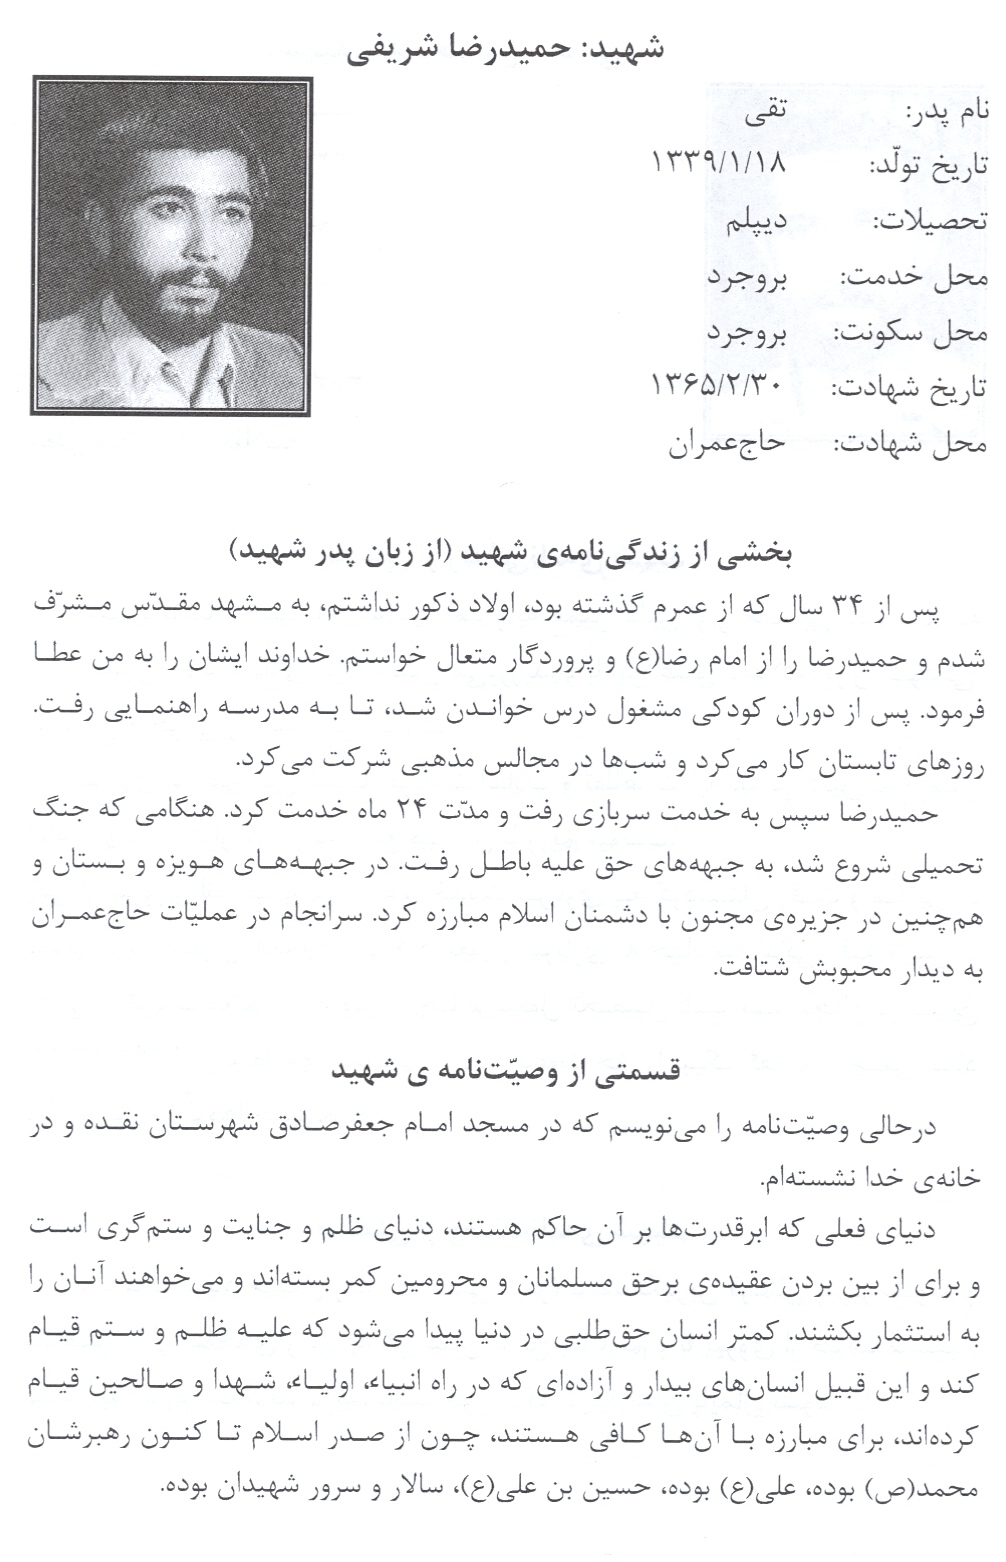 شهید: حمیدرضا شریفی
نام پدر: تقی
تاریخ تولّد: ۱۳۳۹/۱/۱۸
تحصیلات: دیپلم
محل خدمت: بروجرد
محل سکونت: بروجرد
تاریخ شهادت: ۱۳۶۵/۲/۳۰
محل شهادت: حاج‌عمران
بخشی از زندگی‌نامه‌ی شهید (از زبان پدر شهید)
پس از ۳۴ سال که از عمرم گذشته بود، اولاد ذکور نداشتم، به مشهد مقدّس مشرّف
شدم و حمیدرضا را از امام رضا(ع) و پروردگار متعال خواستم. خداوند ایشان را به من عطا
فرمود. پس از دوران کودکی مشغول درس خواندن شد، تا به مدرسه راهنمایی رفت.
روزهای تابستان کار می‌کرد و شب‌ها در مجالس مذهبی شرکت می‌کرد.
حمیدرضا سپس به خدمت سربازی رفت و مدّت ۲۴ ماه خدمت کرد. هنگامی که جنگ
تحمیلی شروع شد، به جبهه‌های حق علیه باطل رفت. در جبهه‌های هویزه و بستان و
هم‌چنین در جزیره‌ی مجنون با دشمنان اسلام مبارزه کرد. سرانجام در عملیّات حاج‌عمران
به دیدار محبوبش شتافت.
قسمتی از وصیّت‌نامه ی شهید
درحالی وصیّت‌نامه را می‌نویسم که در مسجد امام جعفرصادق شهرستان نقده و در
خانه‌ی خدا نشسته‌ام.
دنیای فعلی که ابرقدرت‌ها بر آن حاکم هستند، دنیای ظلم و جنایت و ستم‌گری است
و برای از بین بردن عقیده‌ی برحق مسلمانان و محرومین کمر بسته‌اند و می‌خواهند آنان را
به استثمار بکشند. کمتر انسان حق‌طلبی در دنیا پیدا می‌شود که علیه ظلم و ستم قیام
کند و این قبیل انسان‌های بیدار و آزاده‌ای که در راه انبیاء، اولیاء، شهدا و صالحین قیام
کرده‌اند، برای مبارزه با آن‌ها کافی هستند، چون از صدر اسلام تا کنون رهبرشان
محمد(ص) بوده، علی(ع) بوده، حسین بن علی(ع)، سالار و سرور شهیدان بوده.